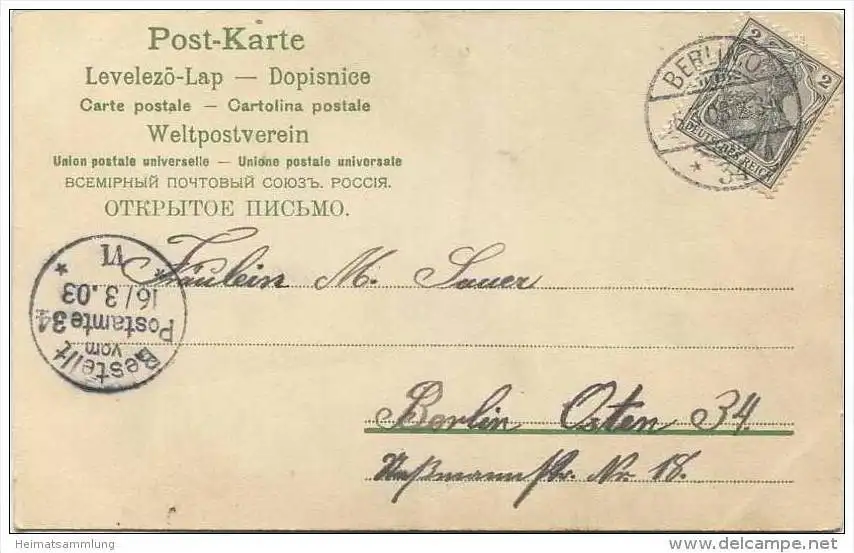 Post-Karte
Levelező-Lap — Dopisnice
Carte postale — Cartolina postale
Weltpostverein
Union postale universelle — Unione postale universale
ВСЕМІРНЫЙ ПОЧТОВЫЙ СОЮЗЪ. РОССІЯ.
ОТКРЫТОЕ ПИСЬМО.
BERLIN O.
34
2 2
DEUTSCHES REICH
Bestellt
vom
Postamte 34
16/3.03
VI
Fräulein M. Sauer
Berlin Osten 34.
Nr. 18.
Heimatsammlung
www.delcampe.net